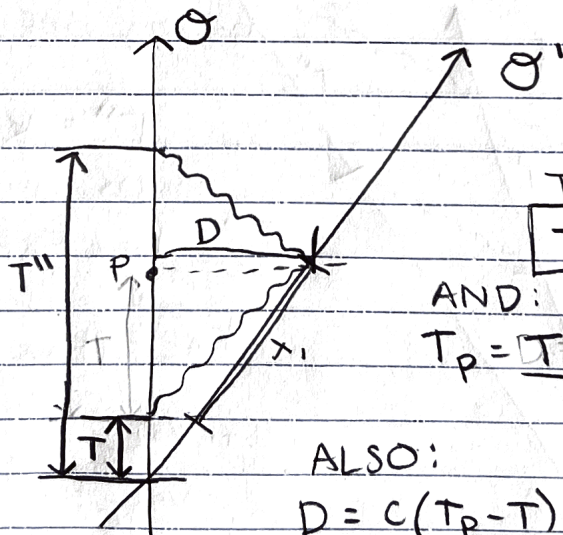 O
O"
D
T"
P
T
x₁
T
AND:
Tₚ = T
ALSO:
D = C(Tₚ - T)